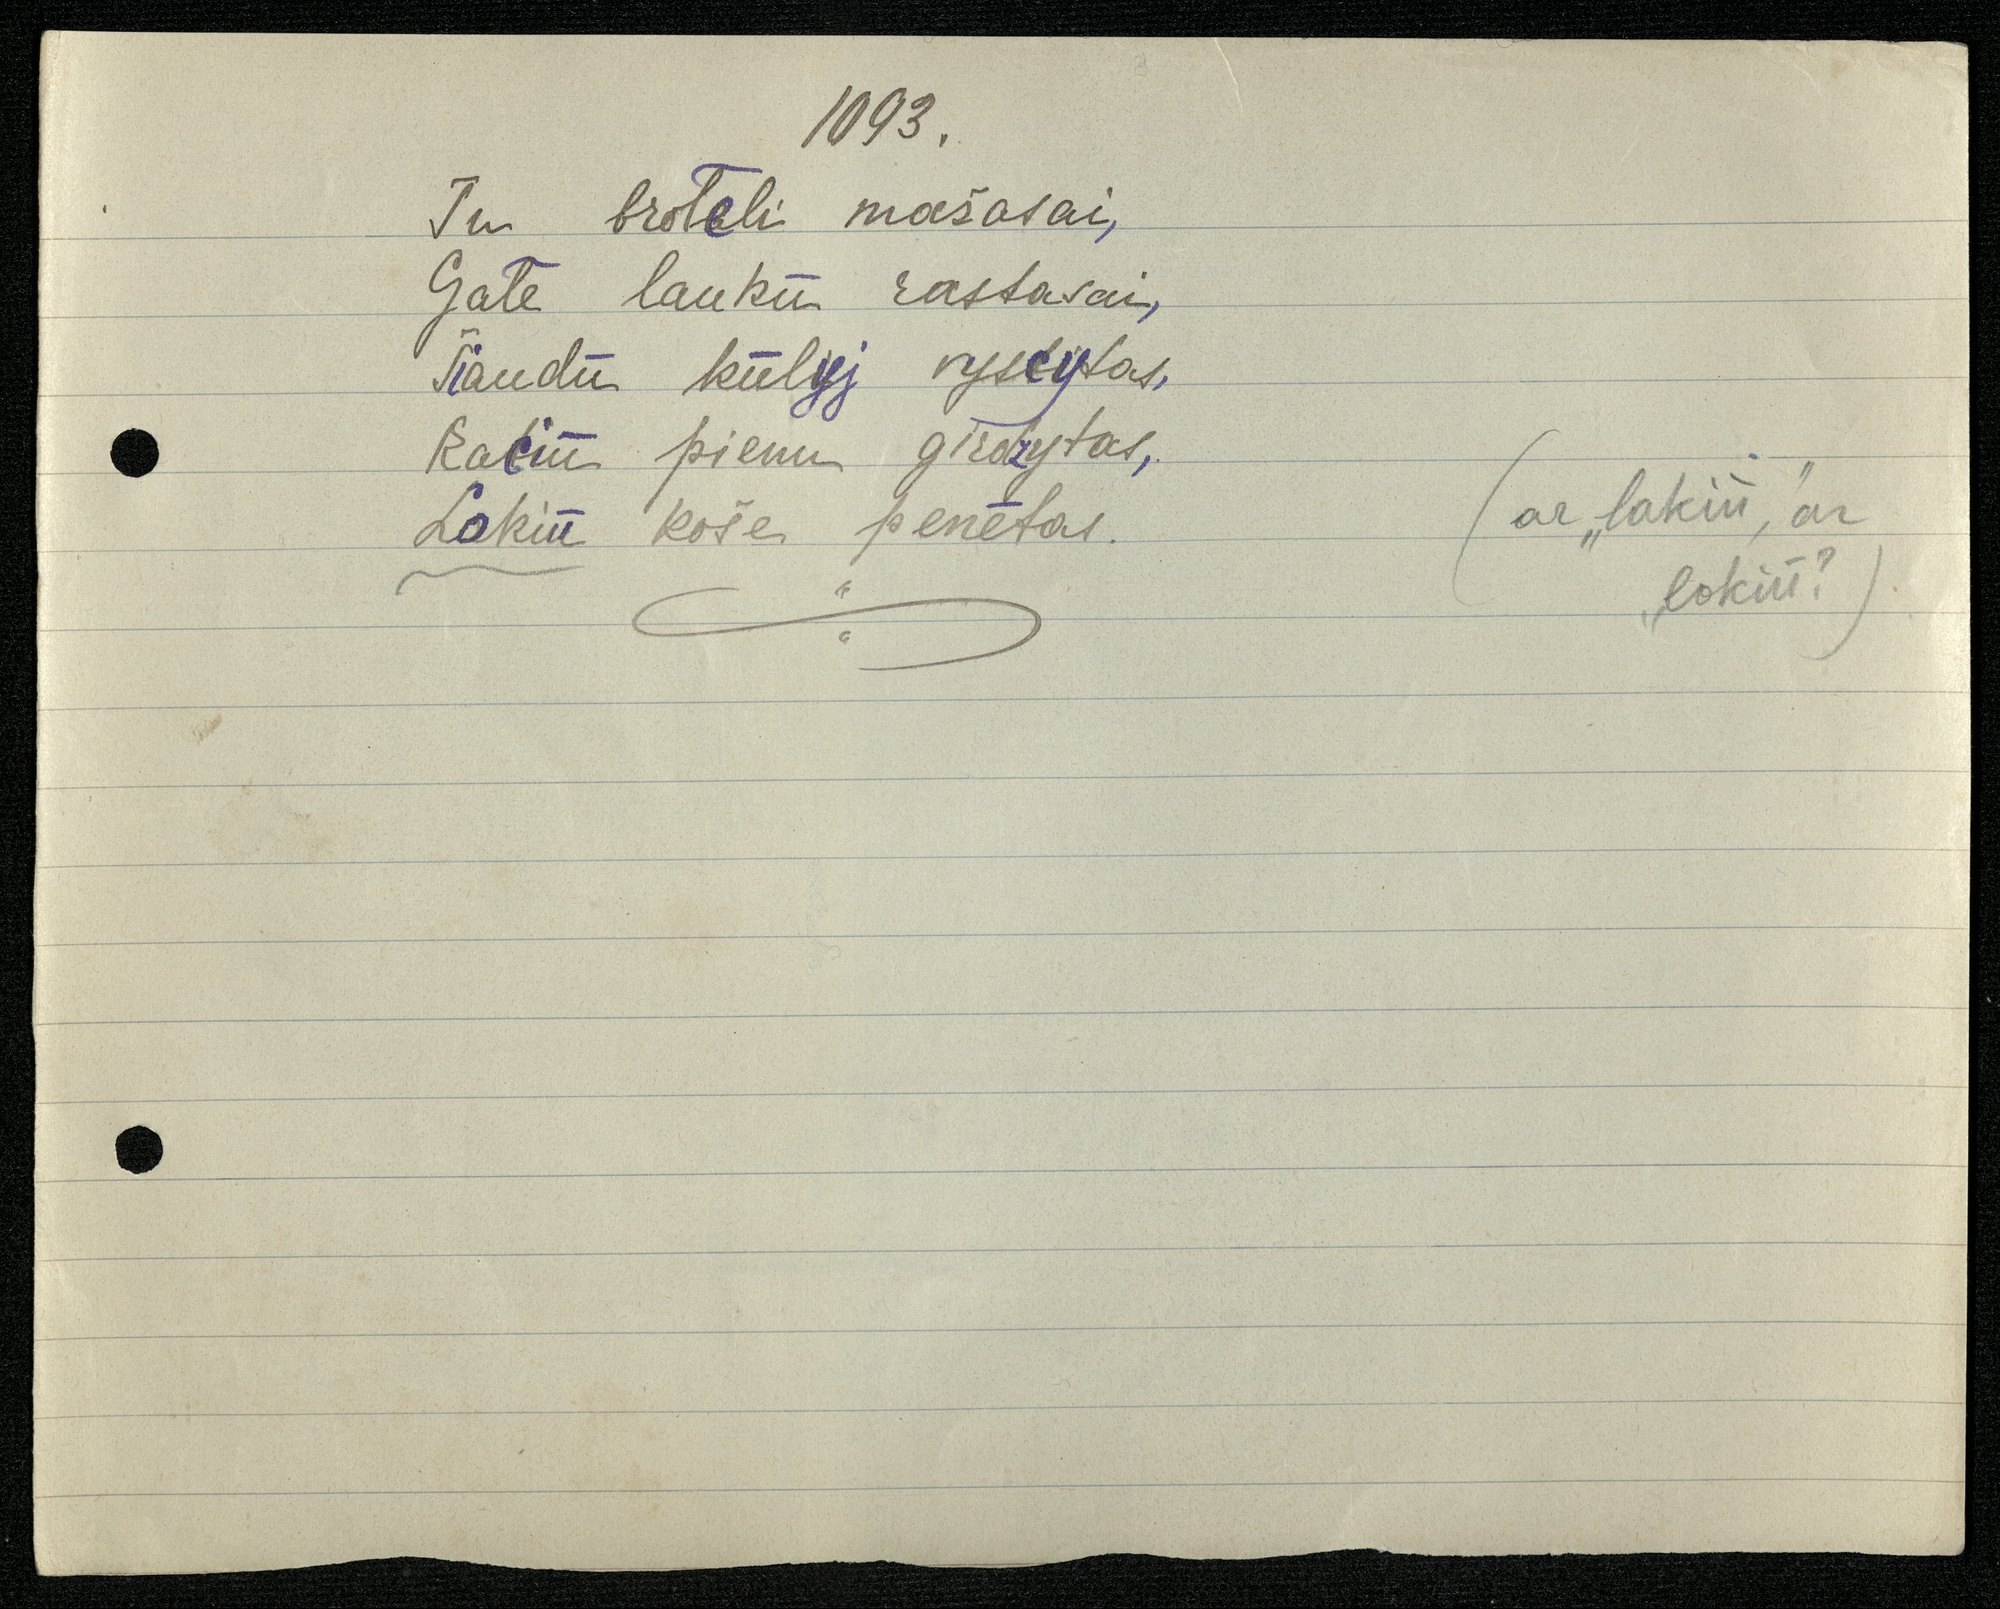 1093.
Tu broteli mašasai,
Gatē laukū rastasai,
Šiaudū kūlyj vyscytas,
Kaciū pienu girdzytas,
Lokiū koše penētas.
(ar „lakiū," ar
„lokiū"?)